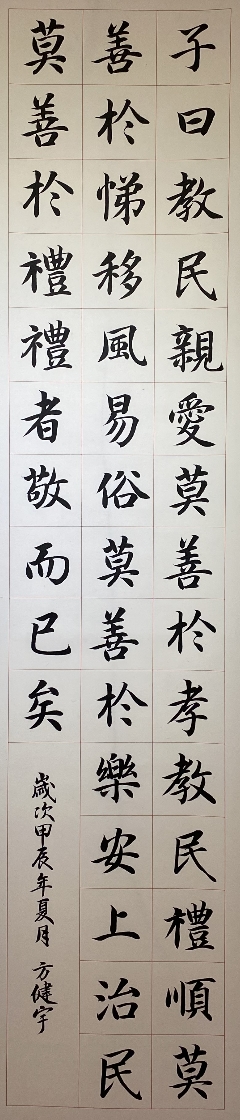 子曰教民親愛莫善於孝教民禮順莫
善於悌移風易俗莫善於樂安上治民
莫善於禮禮者敬而已矣
歲次甲辰年夏月 方健宇